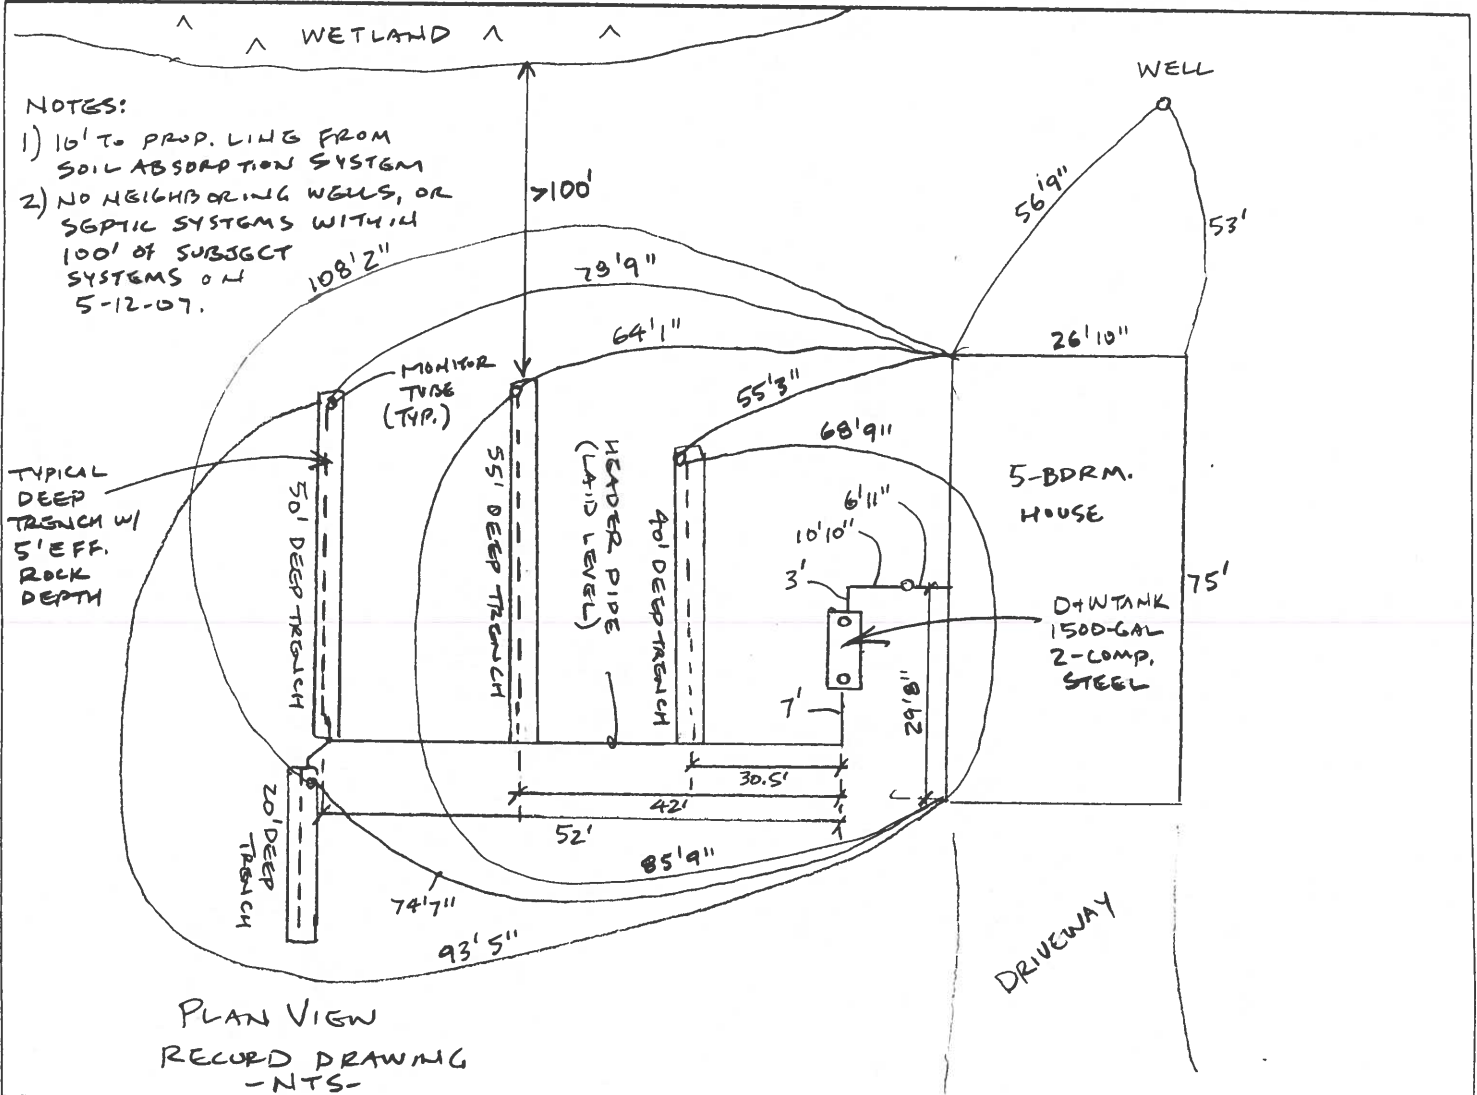 WETLAND
WELL
NOTES:
1) 10' TO PROP. LINE FROM
SOIL ABSORPTION SYSTEM
2) NO NEIGHBORING WELLS, OR
SEPTIC SYSTEMS WITHIN
100' OF SUBJECT
SYSTEMS ON
5-12-07.
>100'
56'9"
53'
108'2"
79'9"
64'1"
55'3"
68'9"
26'10"
MONITOR
TUBE
(TYP.)
TYPICAL
DEEP
TRENCH W/
5' EFF.
ROCK
DEPTH
50' DEEP TRENCH
55' DEEP TRENCH
HEADER PIPE
(LAID LEVEL)
40' DEEP TRENCH
6'11"
10'10"
3'
7'
29'8"
5-BDRM.
HOUSE
75'
D+W TANK
1500-GAL
2-COMP.
STEEL
30.5'
42'
52'
20' DEEP
TRENCH
85'9"
74'7"
93'5"
DRIVEWAY
PLAN VIEW
RECORD DRAWING
-NTS-